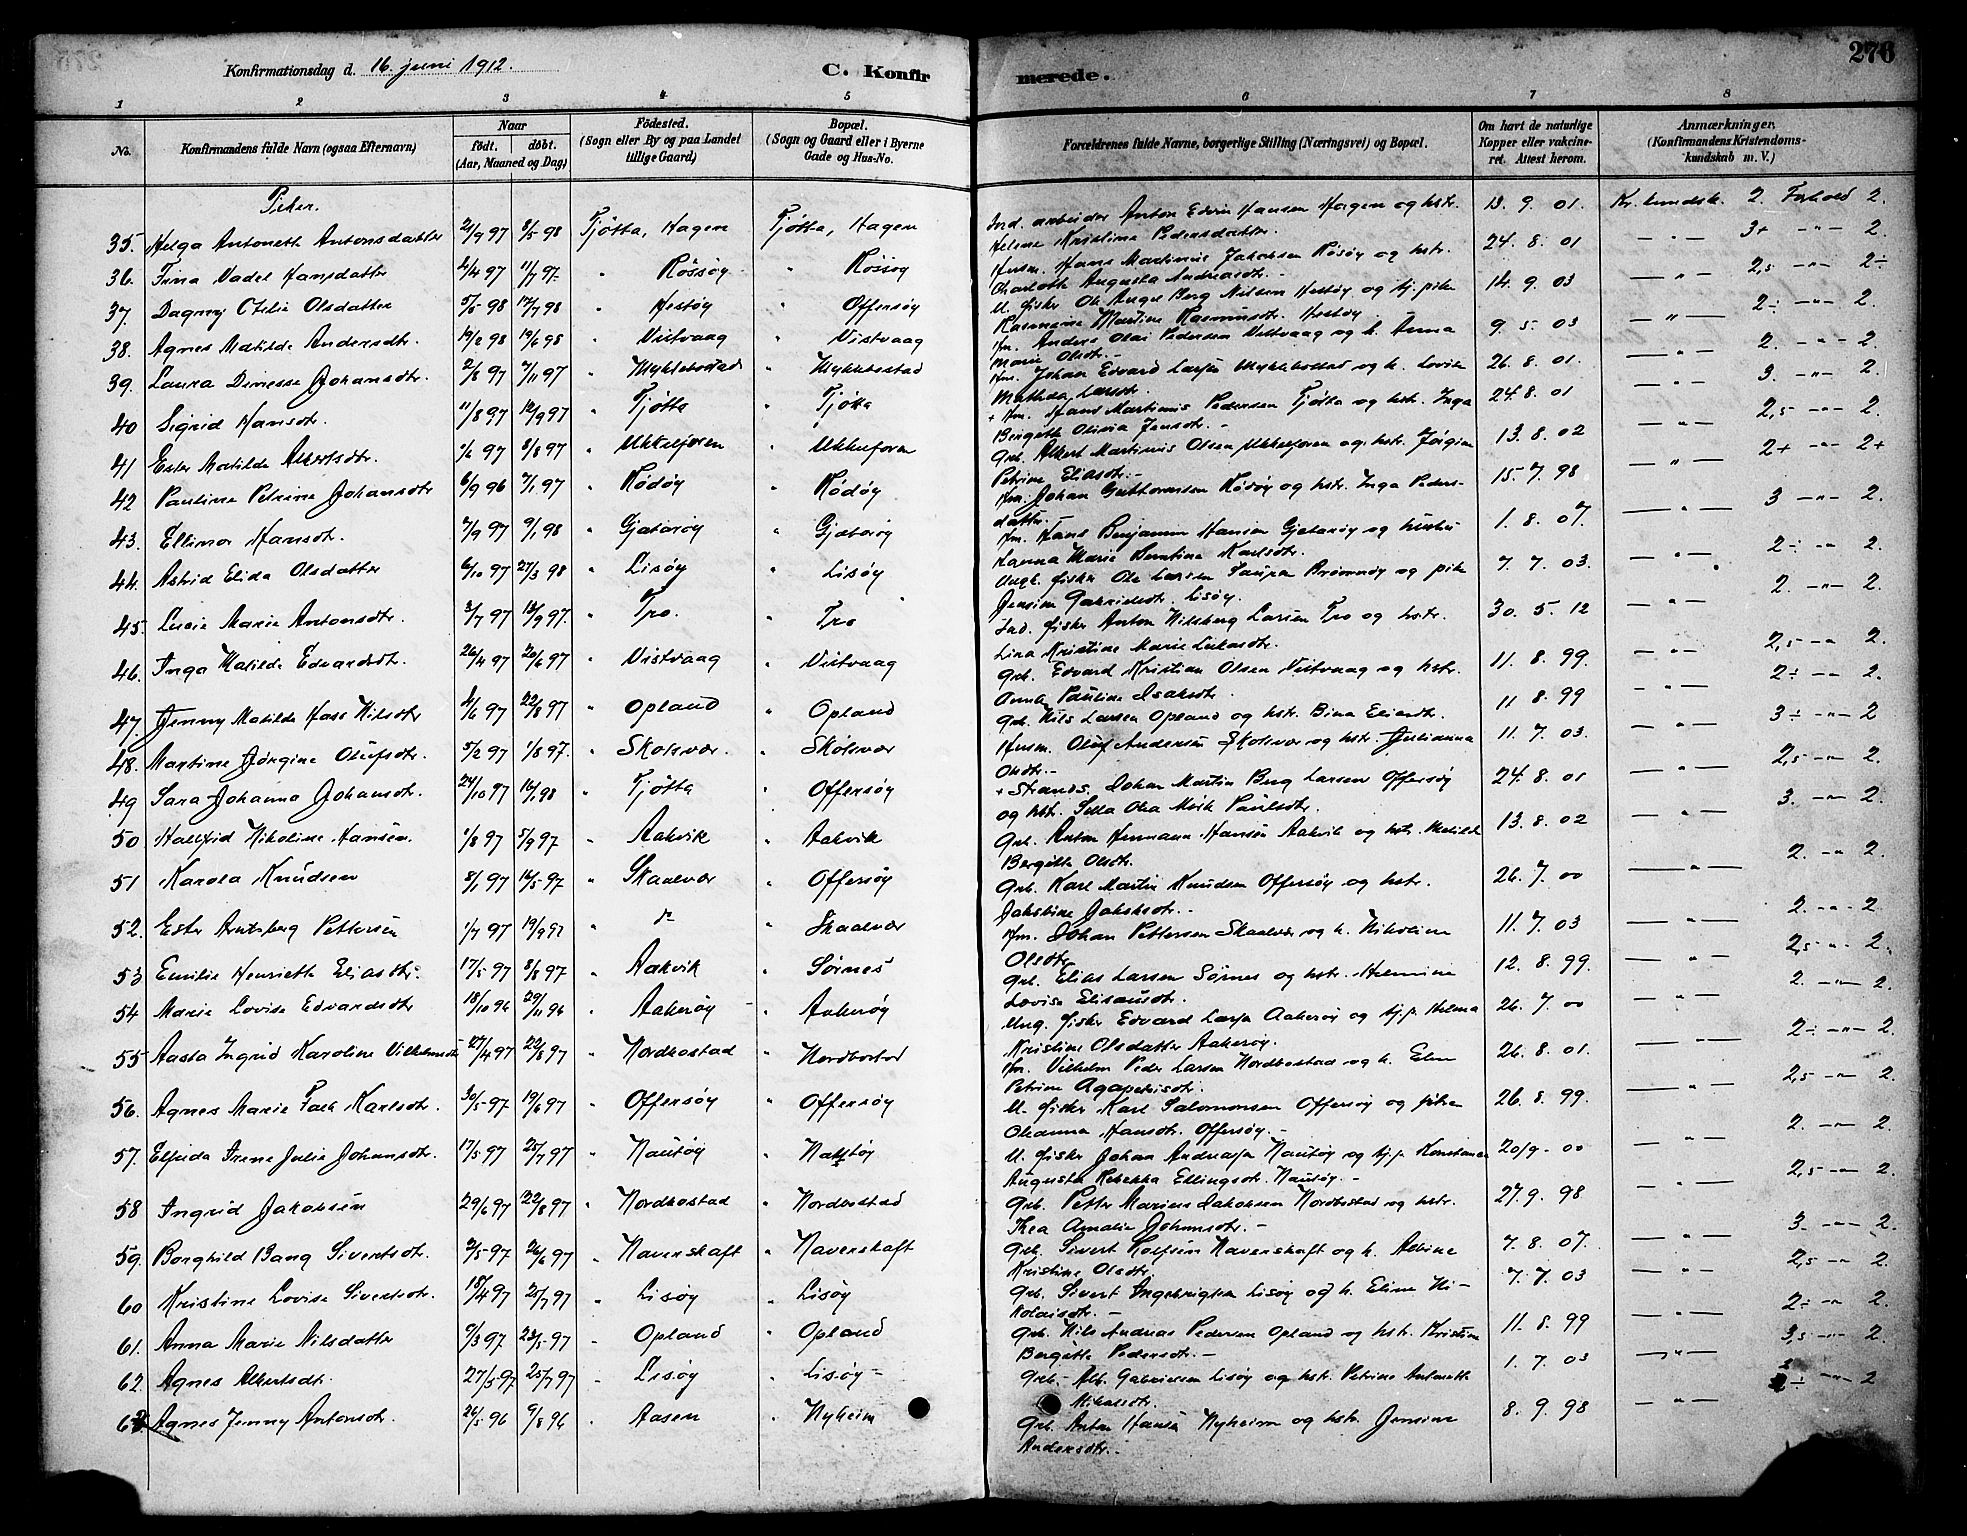 276
Konfirmationsdag d. 16. juni 1912.
C. Konfir
merede.
1 2 3 4 5 6 7 8
No. Konfirmandens fulde Navn (ogsaa Efternavn) Naar født. døbt. (Aar, Maaned og Dag) Födested. (Sogn eller By og paa Landet tillige Gaard) Bopæl. (Sogn og Gaard eller i Byerne Gade og Hus-No. Forældrenes fulde Navne, borgerlige Stilling (Næringsvei) og Bopæl. Om havt de naturlige Kopper eller vakcineret. Attest herom. Anmærkninger. (Konfirmandens Kristendomskundskab m. V.)
Piker.
35. Helga Antonette Antonsdatter 21/9 97 8/5 98 Tjøtta, Hagen Tjøtta, Hagen Ind. arbeider Anton Edvin Hansen Hagen og hstr. 13. 9. 01. Kr. kundsk. 2. Forhold 2.
Helene Kristine Pedersdatter.
36. Trina Hansdatter 11/7 97. " Rössöy " Rossøy Husm. Hans Martinus Jakobsen Rösöy og hstr. 24. 8. 01 — " — 3+ -"- 2.
Charlotte Augusta Andreasdtr. -
37. Dagny Otelie Olsdatter 5/5 98 17/7 98 " Hestöy " Offersøy U. fisker Ole Angel Berg Nilsen Hestöy og tj. pike 14. 9. 03 — " — 2,5 -"- 2÷
Rasmine Martine Rasmusdtr. Hestöy.
38. Agnes Matilde Andersdtr. 19/2 98 19/6 98 " Vistvaag " Vistvaag Fm. Anders Olai Pedersen Vistvaag og h. Anna 9. 5. 03 — " — 2÷ -"- 2.
Marie Olsdtr. -
39. Laura Denesse Johansdtr. 2/8 97 7/11 97 " Myklebostad " Myklebostad Fm. Johan Edvard Larsen Myklebostad og h. Lovise 26. 8. 01. — " — 2. -"- 2.
Mathilda Larsdtr.
40 Sigrid Hansdtr. 11/8 97 12/9 97 " Tjøtta " Tjøtta + Fm. Hans Martinus Pedersen Tjøtta og hstr. Inga 24. 8. 01 — " — 3. -"- 2.
Bergitte Olivia Jensdtr. -
41 Ester Matilde Albertsdtr. 1/6 97 8/8 97 " Ukkelføren " Ukkelføren Grb. Albert Martinus Olsen Ukkelføren og hstr. Jørgine 13. 8. 02 — " — 2,5 -"- 2.
Petrine Eliasdtr. -
42 Pauline Petrine Johansdtr 6/9 96 7/1 97 " Rödöy " Rödöy Fm. Johan Guttormsen Rödöy og hstr. Inga Peders- 15. 7. 98 — " — 2+ -"- 2+
datter. -
43. Ellinor Hansdtr. 7/9 97 9/1 98 " Gjeterøy " Gjeterøy Fm. Hans Benjamin Hansen Gjeterøy og hustru 1. 8. 07. — " — 3 -"- 2.
Hanna Marie Karlsdtr.
44. Astrid Elida Olsdatter 6/10 97 27/3 98 " Lisöy " Lisöy Ungk. fisker Ole Larsen Brönnöy og pike 7. 7. 03. — " — 2÷ -"- 2.
Jensine Gabrielsdtr. Lisöy.
45. Lucie Marie Antonsdtr. 3/7 97 12/9 97. " Tro. " Tro Ind. fisker Anton Nilsberg Larsen Tro og hstr. 30. 5. 12 — " — 2. -"- 2.
Lina Kristine Marie Lukasdtr.
46. Inga Matilde Edvardsdtr. 26/4 97 20/6 97 " Vistvaag " Vistvaag Grb. Edvard Kristian Olsen Vistvaag og hstr. 11. 8. 99. — " — 2,5 -"- 2.
Pauline Isaksdtr.
47. Jemmy Matilde Hass Nilsdtr 4/6 97 22/8 97 " Opland " Opland Grb. Nils Larsen Opland og hstr. Bina Eliasdtr. 11 8. 99 — " — 2÷ -"- 2.
48. Martine Jørgine Olufsdtr. 5/2 97 1/8 97. " Skolsvær. " Skölsvær Husm. Oluf Andersen Skolsvær og hstr. Julianna 11. 7. 03. — " — 3÷ -"- 2
Olsdtr. -
49 Sara Johanna Johansdtr. 24/10 97 16/1 98 " Tjøtta " Offersöy + Strands. Johan Martin Berg Larsen Offersöy 24. 8. 01 — " — 2,5 -"- 2.
og hstr. Olsdtr. Paulsdtr.
50 Hallfrid Nikoline Hansen. 1/8 97 5/9 97 " Aakvik " Aakvik Grb. Anton Hermann Hansen Aakvik og hstr. Matilde 13. 8. 02 — " — 3. -"- 2.
Bergitte Olsdtr.
51 Karola Knudsen 8/1 97 16/5 97 " Skaalvær " Offersöy Grb. Karl Martin Knudsen Offersöy og hstr. 26. 7. 00 — " — 2. -"- 2.
Jakobine Jakobsdtr. -
52. Ester Arntsberg Pettersen 1/7 97 19/9 97 " do " Skaalvær Fm. Johan Pettersen Skaalvær og h. Nikoline 11. 7. 03 — " — 2. -"- 2.
Olsdtr.
53 Emilie Henriette Eliasdtr. 17/5 97 8/8 97 " Aakvik " Sörnes Grb. Elias Larsen Sörnes og hstr. Helmine 12. 8. 99. — " — 2,5 -"- 2.
Lovise Elisausdtr.
54 Marie Lovise Edvardsdtr 18/10 96 29/11 96 " Aakeröy " Aakeröy Ung. fisker Edvard Larsen Aakeröy og tj.p. Helena 26. 7. 00 — " — 2. -"- 2.
Kristine Olsdatter Aakeröy.
55 Aasta Ingrid Karoline Vilhelmsdtr 27/4 97 22/8 97 " Nordbostad " Nordbostad Fm. Vilhelm Peder Larsen Nordbostad og h. Elen 26. 8. 01. — " — 2÷ -"- 2.
Petrine Agapetusdtr.
56. Agnes Marie Falk Karlsdtr. 30/5 97 19/6 97 " Offersöy " Offersöy U. fisker Karl Salomonsen Offersöy og piken 26. 8. 99. — " — 2,5 -"- 2.
Oleanna Hansdtr. Offersöy. -
57. Elfrida Irene Julie Johansdtr. 17/5 97 25/7 97 " Nautöy " Nautöy U. fisker Johan Andreasen Nautöy og tj.p. Konstanse 20/9. 00 — " — 2. -"- 2.
Augusta Rebekka Ellingsdtr. Nautöy. -
58 Ingrid Jakobsen 29/6 97 22/8 97 " Nordbostad " Nordbostad Grb. Petter Marius Jakobsen Nordbostad og hstr. 27. 9. 98 — " — 2,5 -"- 2.
Thea Amalie Johansdtr. -
59. Borghild Bang Sivertsdtr. 2/5 97 26/6 97 " Naverskaft " Naverskaft Grb. Sivert Rolfsen Naverskaft og h. Albine 7. 8. 07. — " — 3. -"- 2.
Kristine Olsdtr.
60 Kristine Lovise Sivertsdtr. 18/4 97 25/7 97 " Lisöy " Lisöy Grb. Sivert Ingebrigtsen Lisöy og h. Eline Ni- 7. 7. 03 — " — 2,5 -"- 2.
kolaisdtr. -
61. Anna Marie Nilsdatter 9/3 97. 23/5 97 " Opland " Opland Grb. Nils Andreas Pedersen Opland og hstr. Kristine 11. 8. 99 — " — 2÷ -"- 2.
Bergitte Pedersdtr. -
62. Agnes Albertsdtr. 27/5 97 25/7 97 " Lisöy " Lisöy - Grb. - Alb. Gabrielsen Lisöy og hstr. Petrine Antonette 1. 7. 03 — " — 3,5 -"- 2.
Nikolaisdtr.
63. Agnes Jenny Antonsdtr. 26/5 96 9/8 96 " Aasen " Nyheim Grb. Anton Hansen Nyheim og hstr. Jensine 8. 9. 98 — " — 2÷ -"- 2
Andersdtr. -